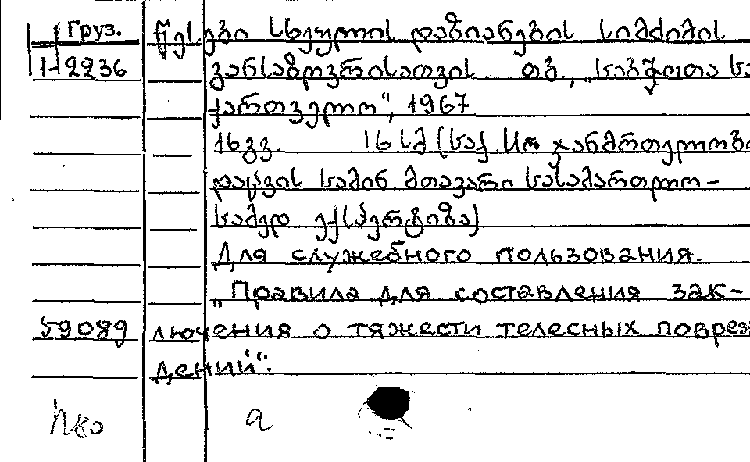 Груз.
წესები სხეულის დაზიანების სიმძიმის
1-2236 განსაზღვრისათვის თბ., „საბჭოთა სა
ქართველო", 1967
16 გვ. 16 სმ (საქ. სსრ ჯანმრთელობ
დაცვის სამინ. მთავარი სასამართლო-
სამედ ექსპერტიზა)
Для служебного пользования.
„Правила для составления зак-
59089 лючения о тяжести телесных повреж
дений".
а